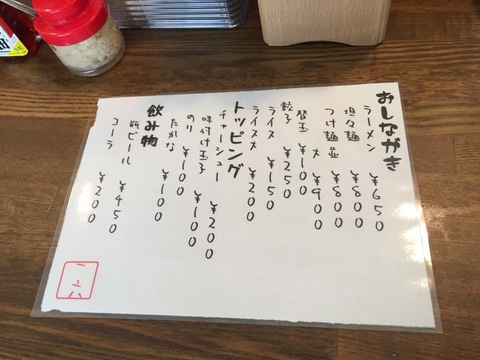 おしながき
ラーメン ¥650
担々麺 ¥800
つけ麺 並 ¥800
大 ¥900
替玉 ¥100
餃子 ¥250
ライス ¥150
ライス大 ¥200
トッピング
チャーシュー ¥200
味付け玉子 ¥100
のり ¥100
たかな ¥100
飲み物
瓶ビール ¥450
コーラ ¥200